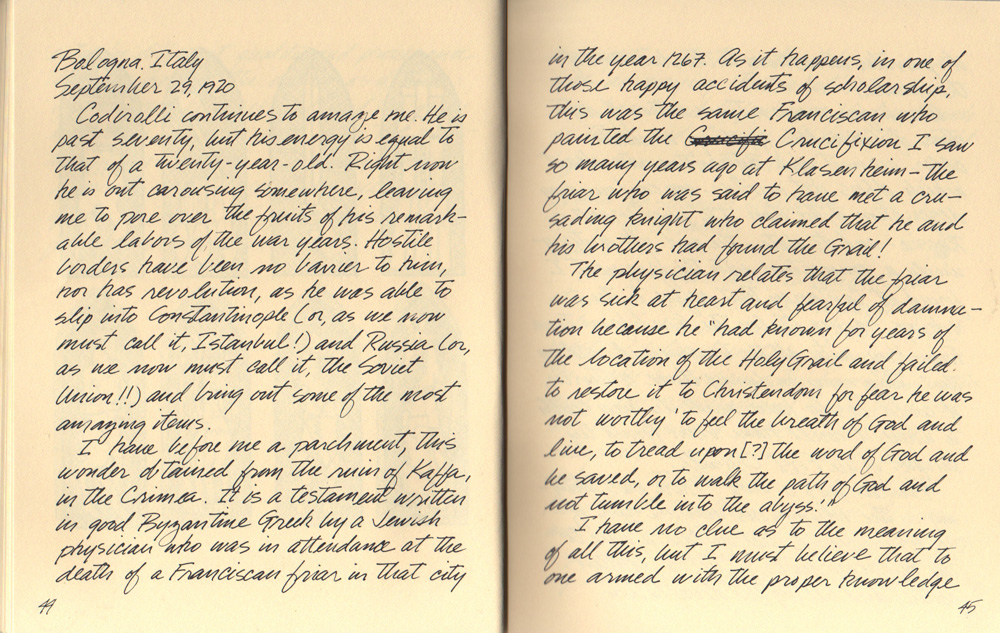 Bologna, Italy
September 29, 1920
Codirolli continues to amaze me. He is
past seventy, but his energy is equal to
that of a twenty-year-old. Right now
he is out carousing somewhere, leaving
me to pore over the fruits of his remark-
able labors of the war years. Hostile
borders have been no barrier to him,
nor has revolution, as he was able to
slip into Constantinople (or, as we now
must call it, Istanbul!) and Russia (or,
as we now must call it, the Soviet
Union!!) and bring out some of the most
amazing items.
I have before me a parchment, this
wonder obtained from the ruins of Kaffa,
in the Crimea. It is a testament written
in good Byzantine Greek by a Jewish
physician who was in attendance at the
death of a Franciscan friar in that city
44
in the year 1267. As it happens, in one of
those happy accidents of scholarship,
this was the same Franciscan who
painted the Crucifixion I saw
so many years ago at Klasenheim—the
friar who was said to have met a cru-
sading knight who claimed that he and
his brothers had found the Grail!
The physician relates that the friar
was sick at heart and fearful of damna-
tion because he "had known for years of
the location of the Holy Grail and failed
to restore it to Christendom for fear he was
not worthy 'to feel the breath of God and
live, to tread upon [?] the word of God and
be saved, or to walk the path of God and
not tumble into the abyss.'"
I have no clue as to the meaning
of all this, but I must believe that to
one armed with the proper knowledge
45